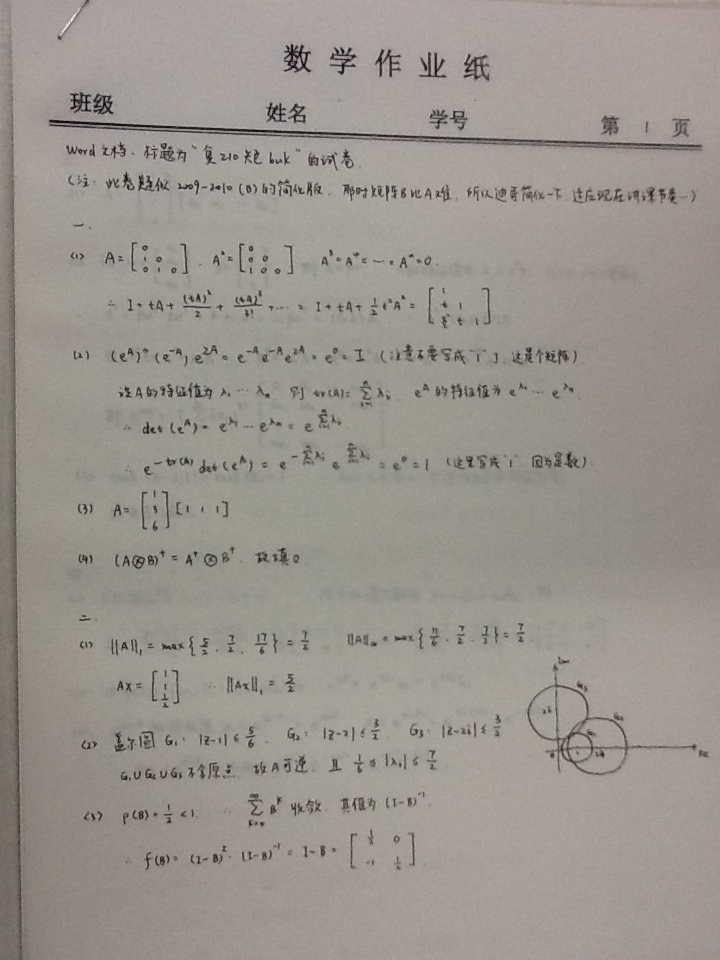 数学作业纸
班级 姓名 学号 第 1 页
Word文档. 标题为"复210矩buk"的试卷.
(注: 此卷题似2009-2010(B)的简化版, 那时矩阵B比A难, 所以迪哥简化一下, 适应现在讲课节奏~)
一、
(1) A = [0; 1 0; 0 1 0], A² = [0; 0 0; 1 0 0] A³ = A⁴ = … = Aⁿ = 0
∴ I + tA + (tA)²/2 + (tA)³/3! + … = I + tA + ½t²A² = [1; t 1; t²/2 t 1].
(2) (e^A)⁺(e^{-A}) e^{2A} = e^{-A}e^{-A}e^{2A} = e⁰ = I (注意不要写成"1", 这是个矩阵)
设A的特征值为 λ₁ … λₙ 则 tr(A) = Σ_{i=1}^{n} λᵢ e^A 的特征值为 e^{λ₁} … e^{λₙ}
∴ det(e^A) = e^{λ₁} … e^{λₙ} = e^{Σλᵢ}
∴ e^{-tr(A)} det(e^A) = e^{-Σλᵢ} e^{Σλᵢ} = e⁰ = 1 (这里写成"1" 因为是数)
(3) A = [1; 3; 6] [1 1 1]
(4) (A⊗B)⁺ = A⁺⊗B⁺, 故填0
二、
(1) ||A||₁ = max{5/2, 7/2, 17/6} = 7/2 ||A||∞ = max{11/6, 7/2, 7/2} = 7/2
Ax = [1; 1; 1/2] ∴ ||Ax||₁ = 5/2
(2) 盖尔圆 G₁: |z-1| ≤ 5/6, G₂: |z-2| ≤ 3/2, G₃: |z-2i| ≤ 3/2
G₁∪G₂∪G₃不含原点, 故A可逆, 且 1/6 ≤ |λᵢ| ≤ 7/2
(3) ρ(B) = ½ < 1, ∴ Σ_{k=0}^{∞} B^k 收敛, 其值为 (I-B)⁻¹.
∴ f(B) = (I-B)²·(I-B)⁻¹ = I-B = [½ 0; -1 ½]
Im
G₃
2i
G₂
G₁
0 1 2
Re